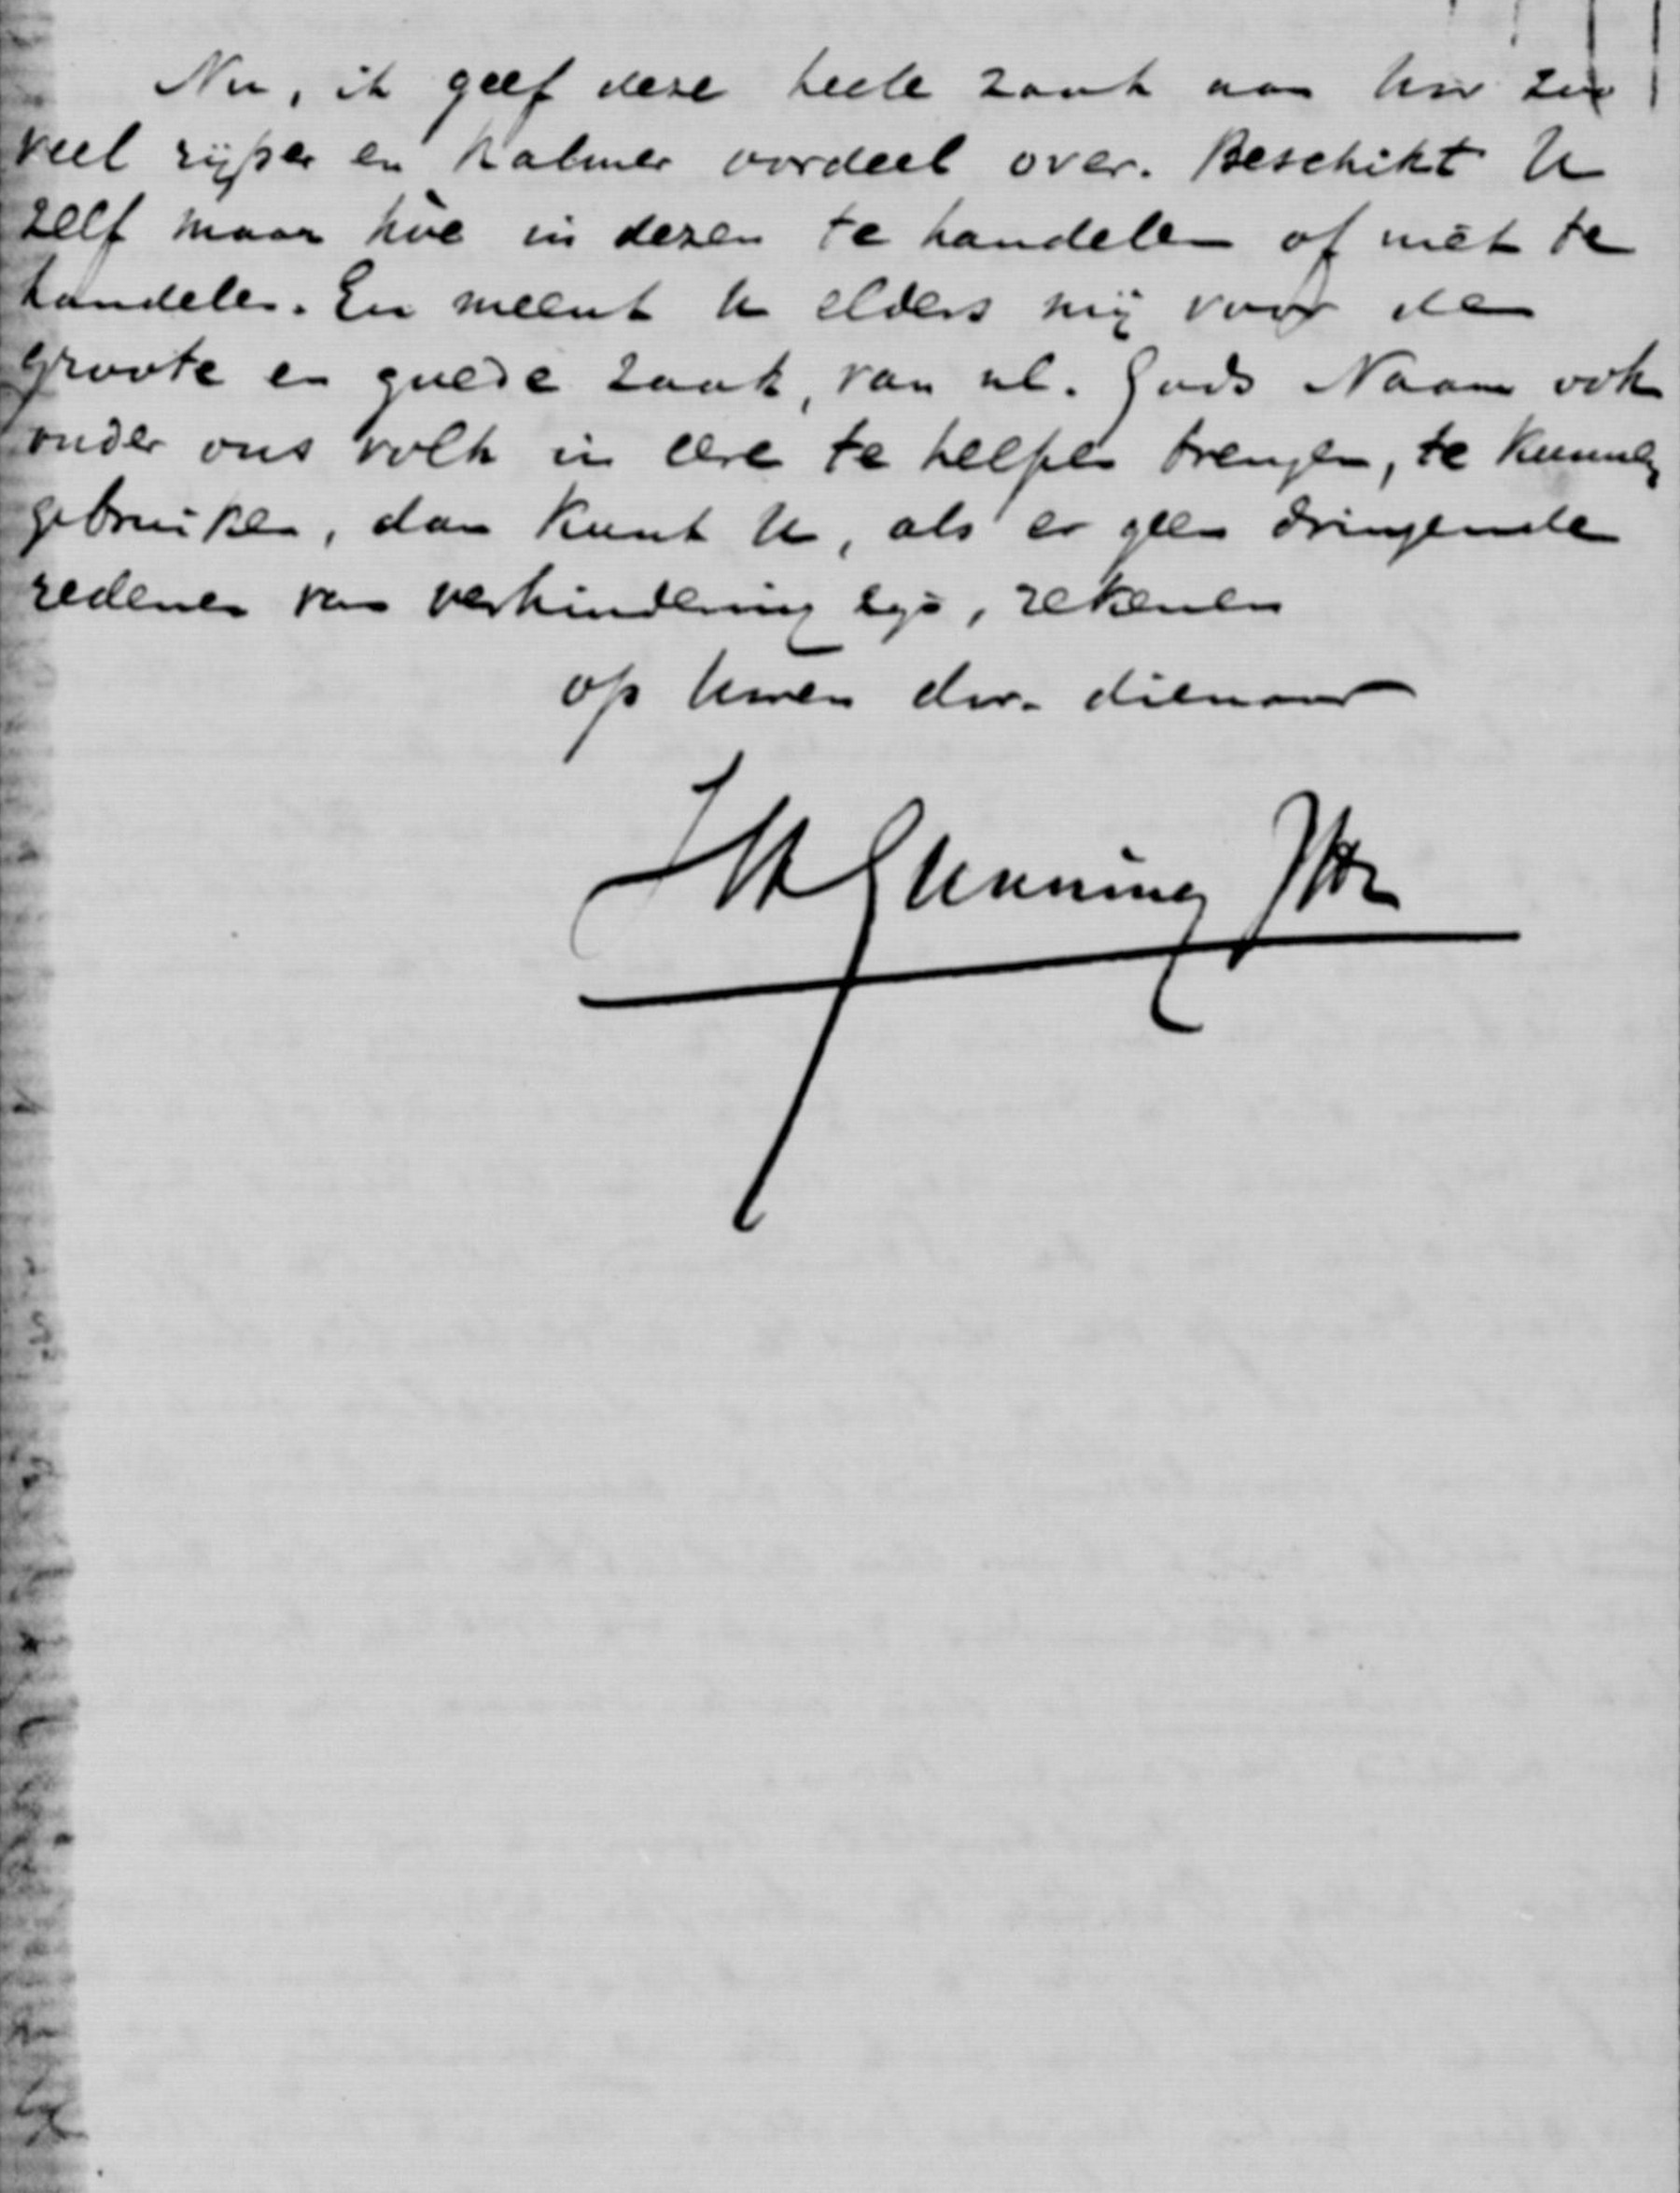 Nu, ik geef deze heele zaak aan Uw zoo
veel rijper en kalmer oordeel over. Beschikt U
zelf maar hoe in dezen te handelen of niet te
handelen. En meent U elders mij voor de
groote en goede zaak, van nl. Gods Naam ook
onder ons volk in eere te helpen brengen, te kunnen
gebruiken, dan kunt U, als er geen dringende
redenen van verhindering zijn, rekenen
op Uwen dw. dienaar
JH Gunning JHz